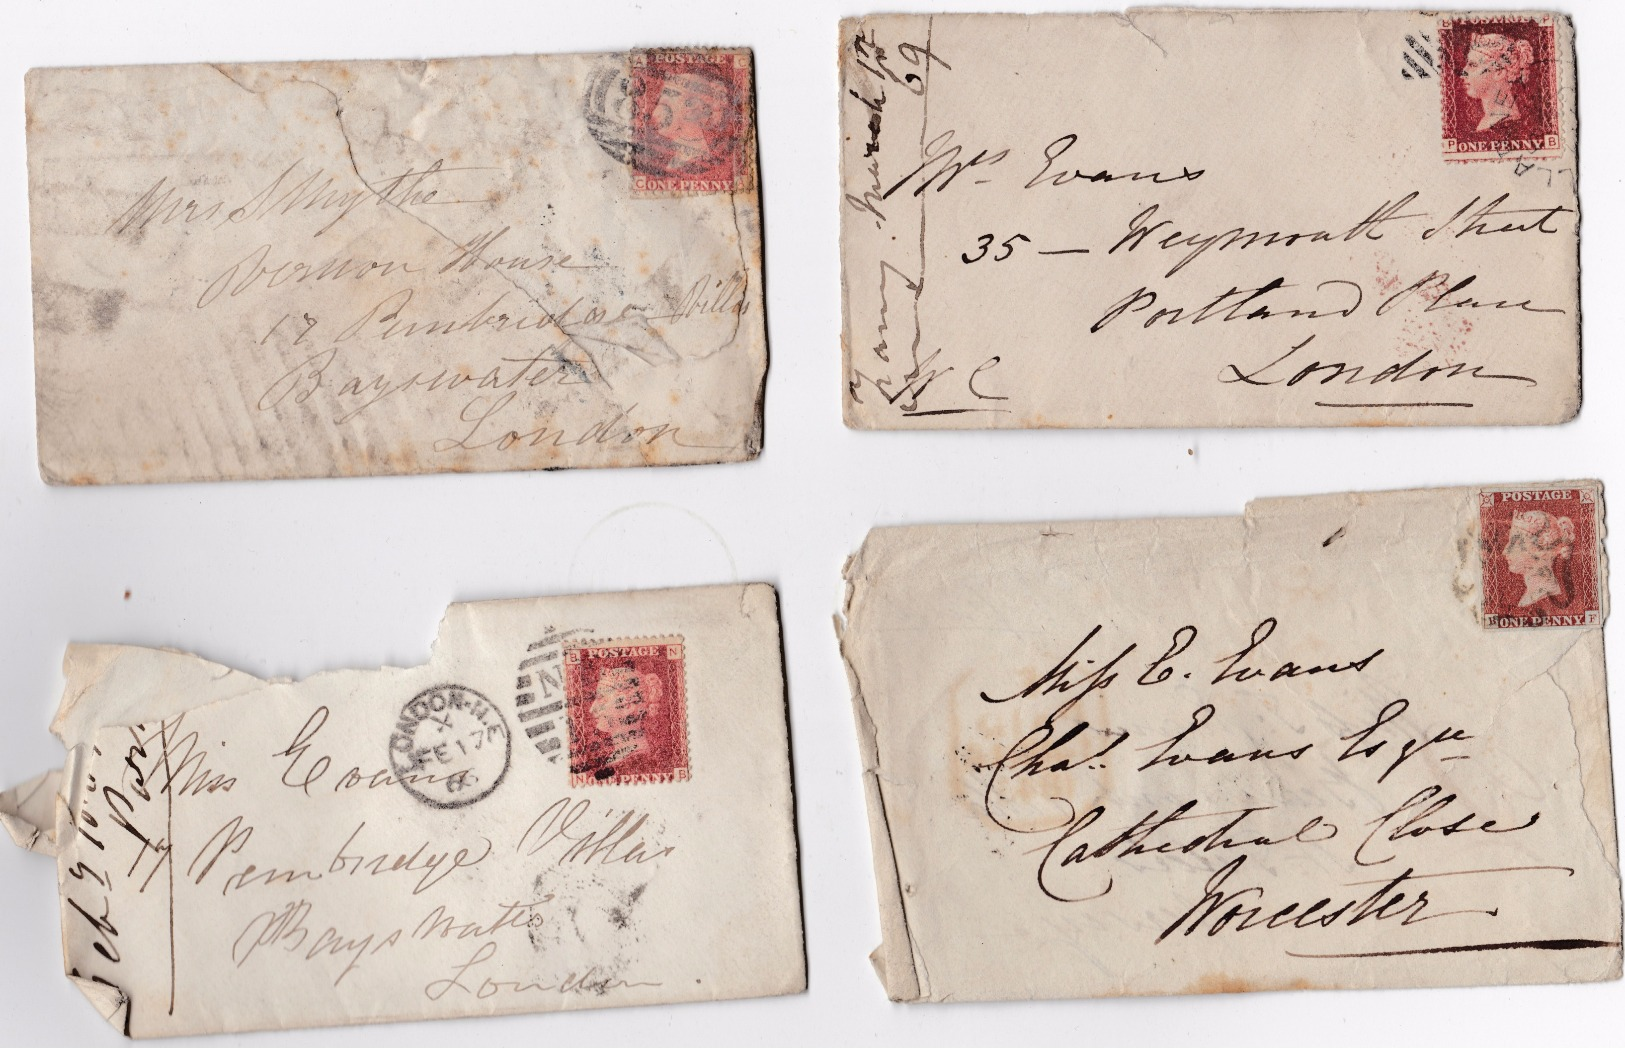 A POSTAGE C
C ONE PENNY A
Mrs Smythe
Vernon House
17 Pembridge Villas
Bayswater
London
B POSTAGE P
P ONE PENNY B
Fanny. March 17th
69
Mrs Evans
35 — Weymouth Street
Portland Place
London
W C
B POSTAGE N
N ONE PENNY B
N
LONDON·N.
X
FE 17
Miss Evans
17 Pembridge Villas
Bayswater
London.
Feb 9
POSTAGE
ONE PENNY F
Miss E. Evans
Chas. Evans Esqre
Cathedral Close
Worcester